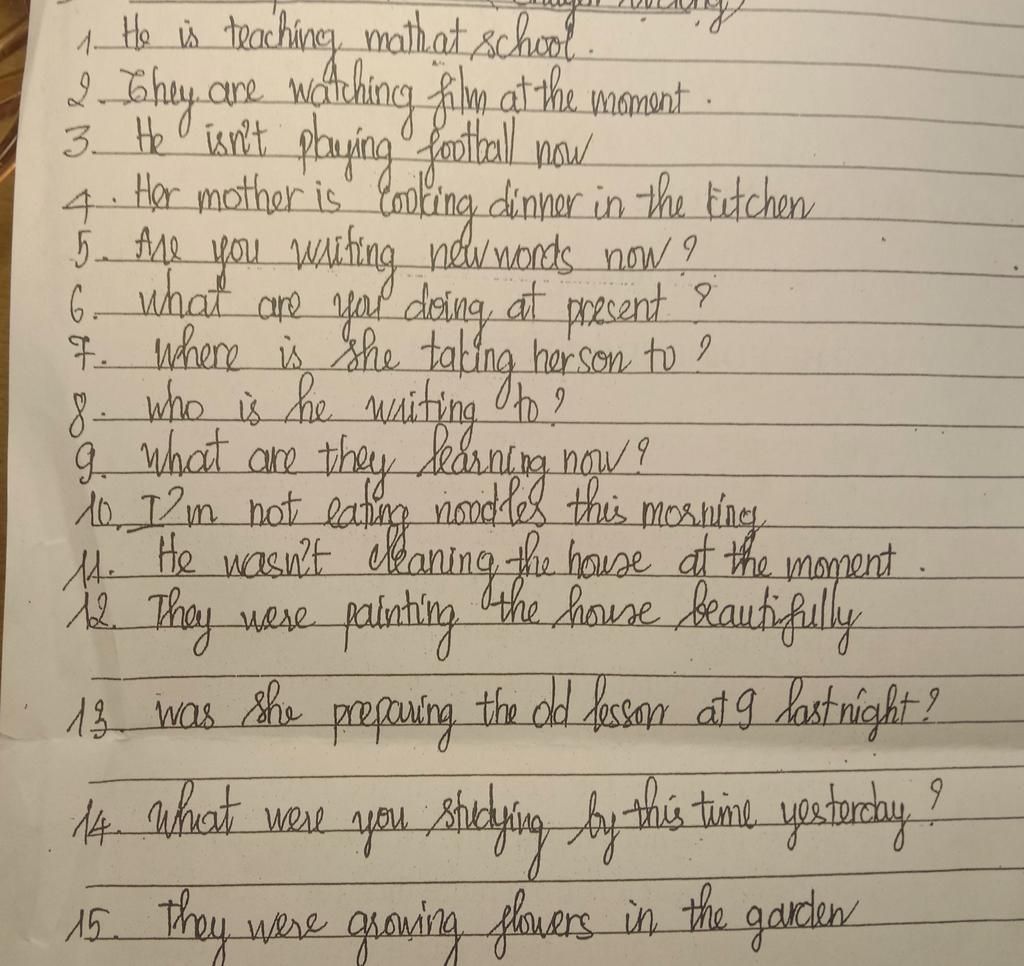 1. He is teaching math at school.
2. They are watching film at the moment.
3. He isn't playing football now
4. Her mother is cooking dinner in the kitchen
5. Are you writing new words now?
6. What are you doing at present?
7. Where is she taking her son to?
8. Who is he writing to?
9. What are they learning now?
10. I'm not eating noodles this morning
11. He wasn't cleaning the house at the moment.
12. They were painting the house beautifully
13. Was she preparing the old lesson at 9 last night?
14. What were you studying by this time yesterday?
15. They were growing flowers in the garden